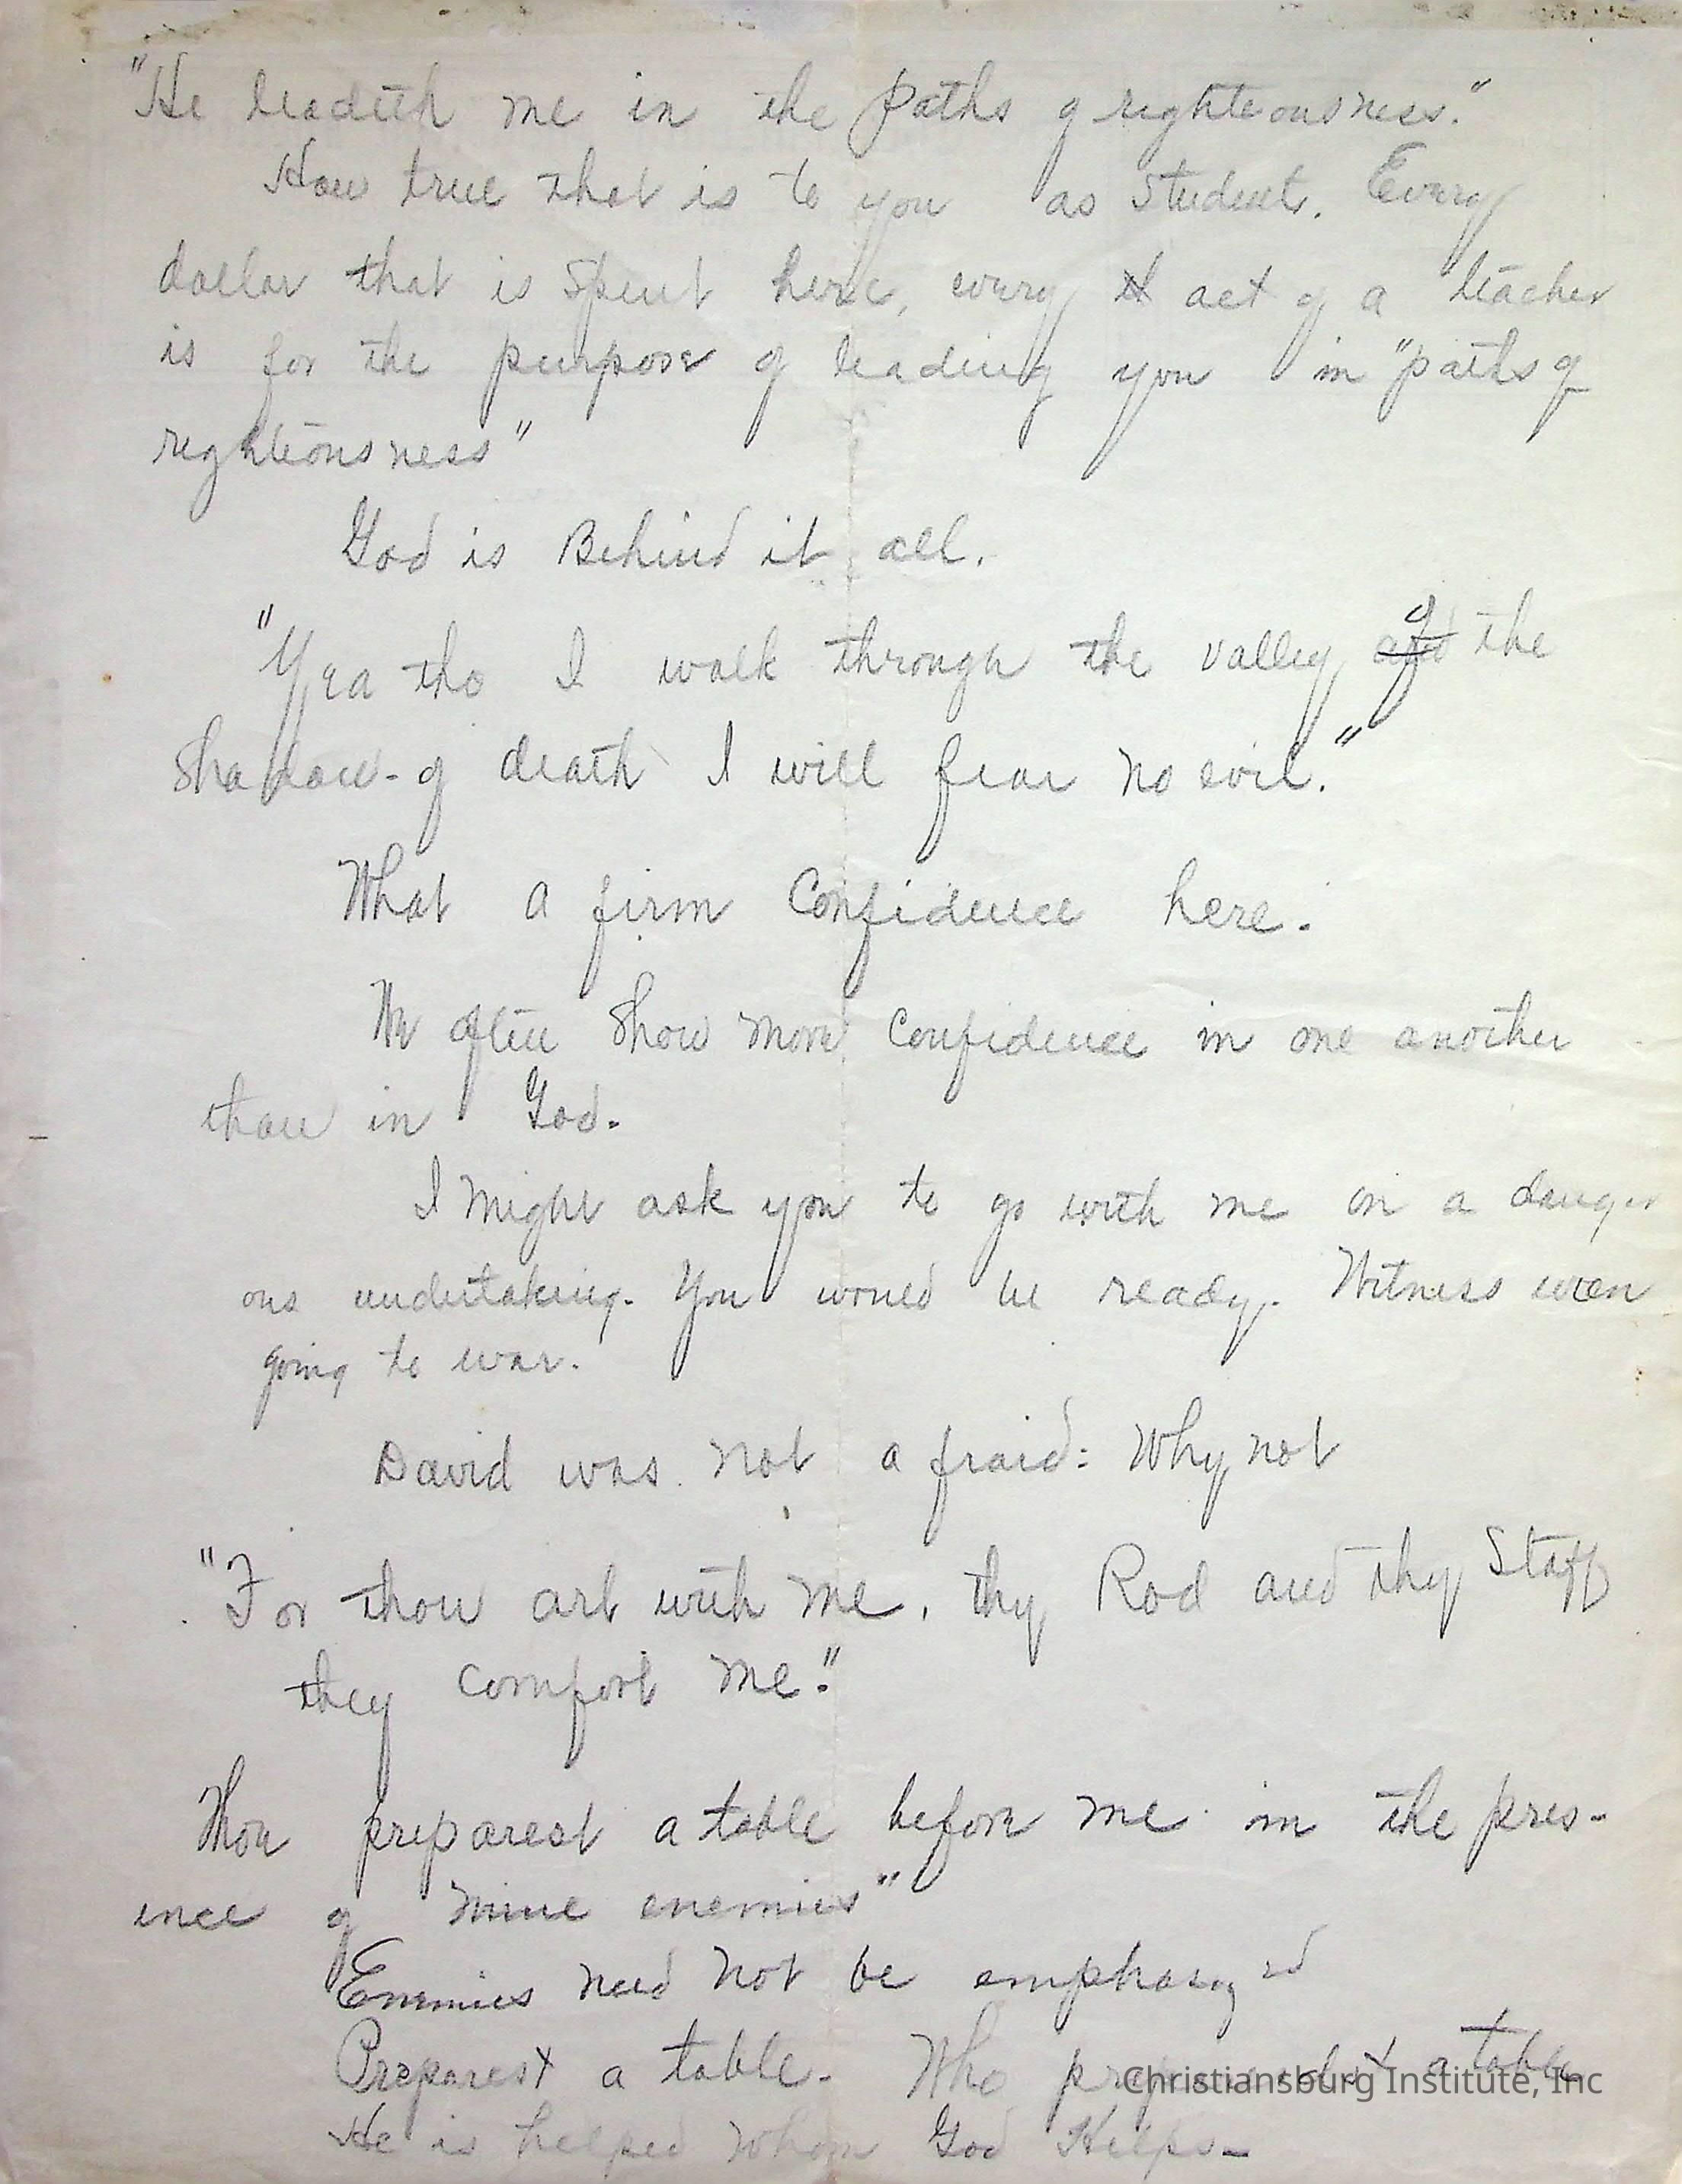 "He leadeth me in the paths of righteousness."
How true that is to you as Student. Every
dollar that is spent here, every act of a teacher
is for the purpose of leading you in "paths of
righteousness"
God is Behind it all.
"Yea tho I walk through the valley of the
shadow - of death I will fear no evil."
What a firm Confidence here.
We often show more confidence in one another
than in God.
I might ask you to go with me on a danger
ous undertaking. You would be ready. Witness
going to war.
David was not afraid: Why not
"For thou art with me, thy Rod and thy Staff
they comfort me."
Thou preparest a table before me in the pres-
ence of mine enemies"
Enemies need not be
Preparest a table. Who a table
He is helped whom God Helps -
Christiansburg Institute, Inc